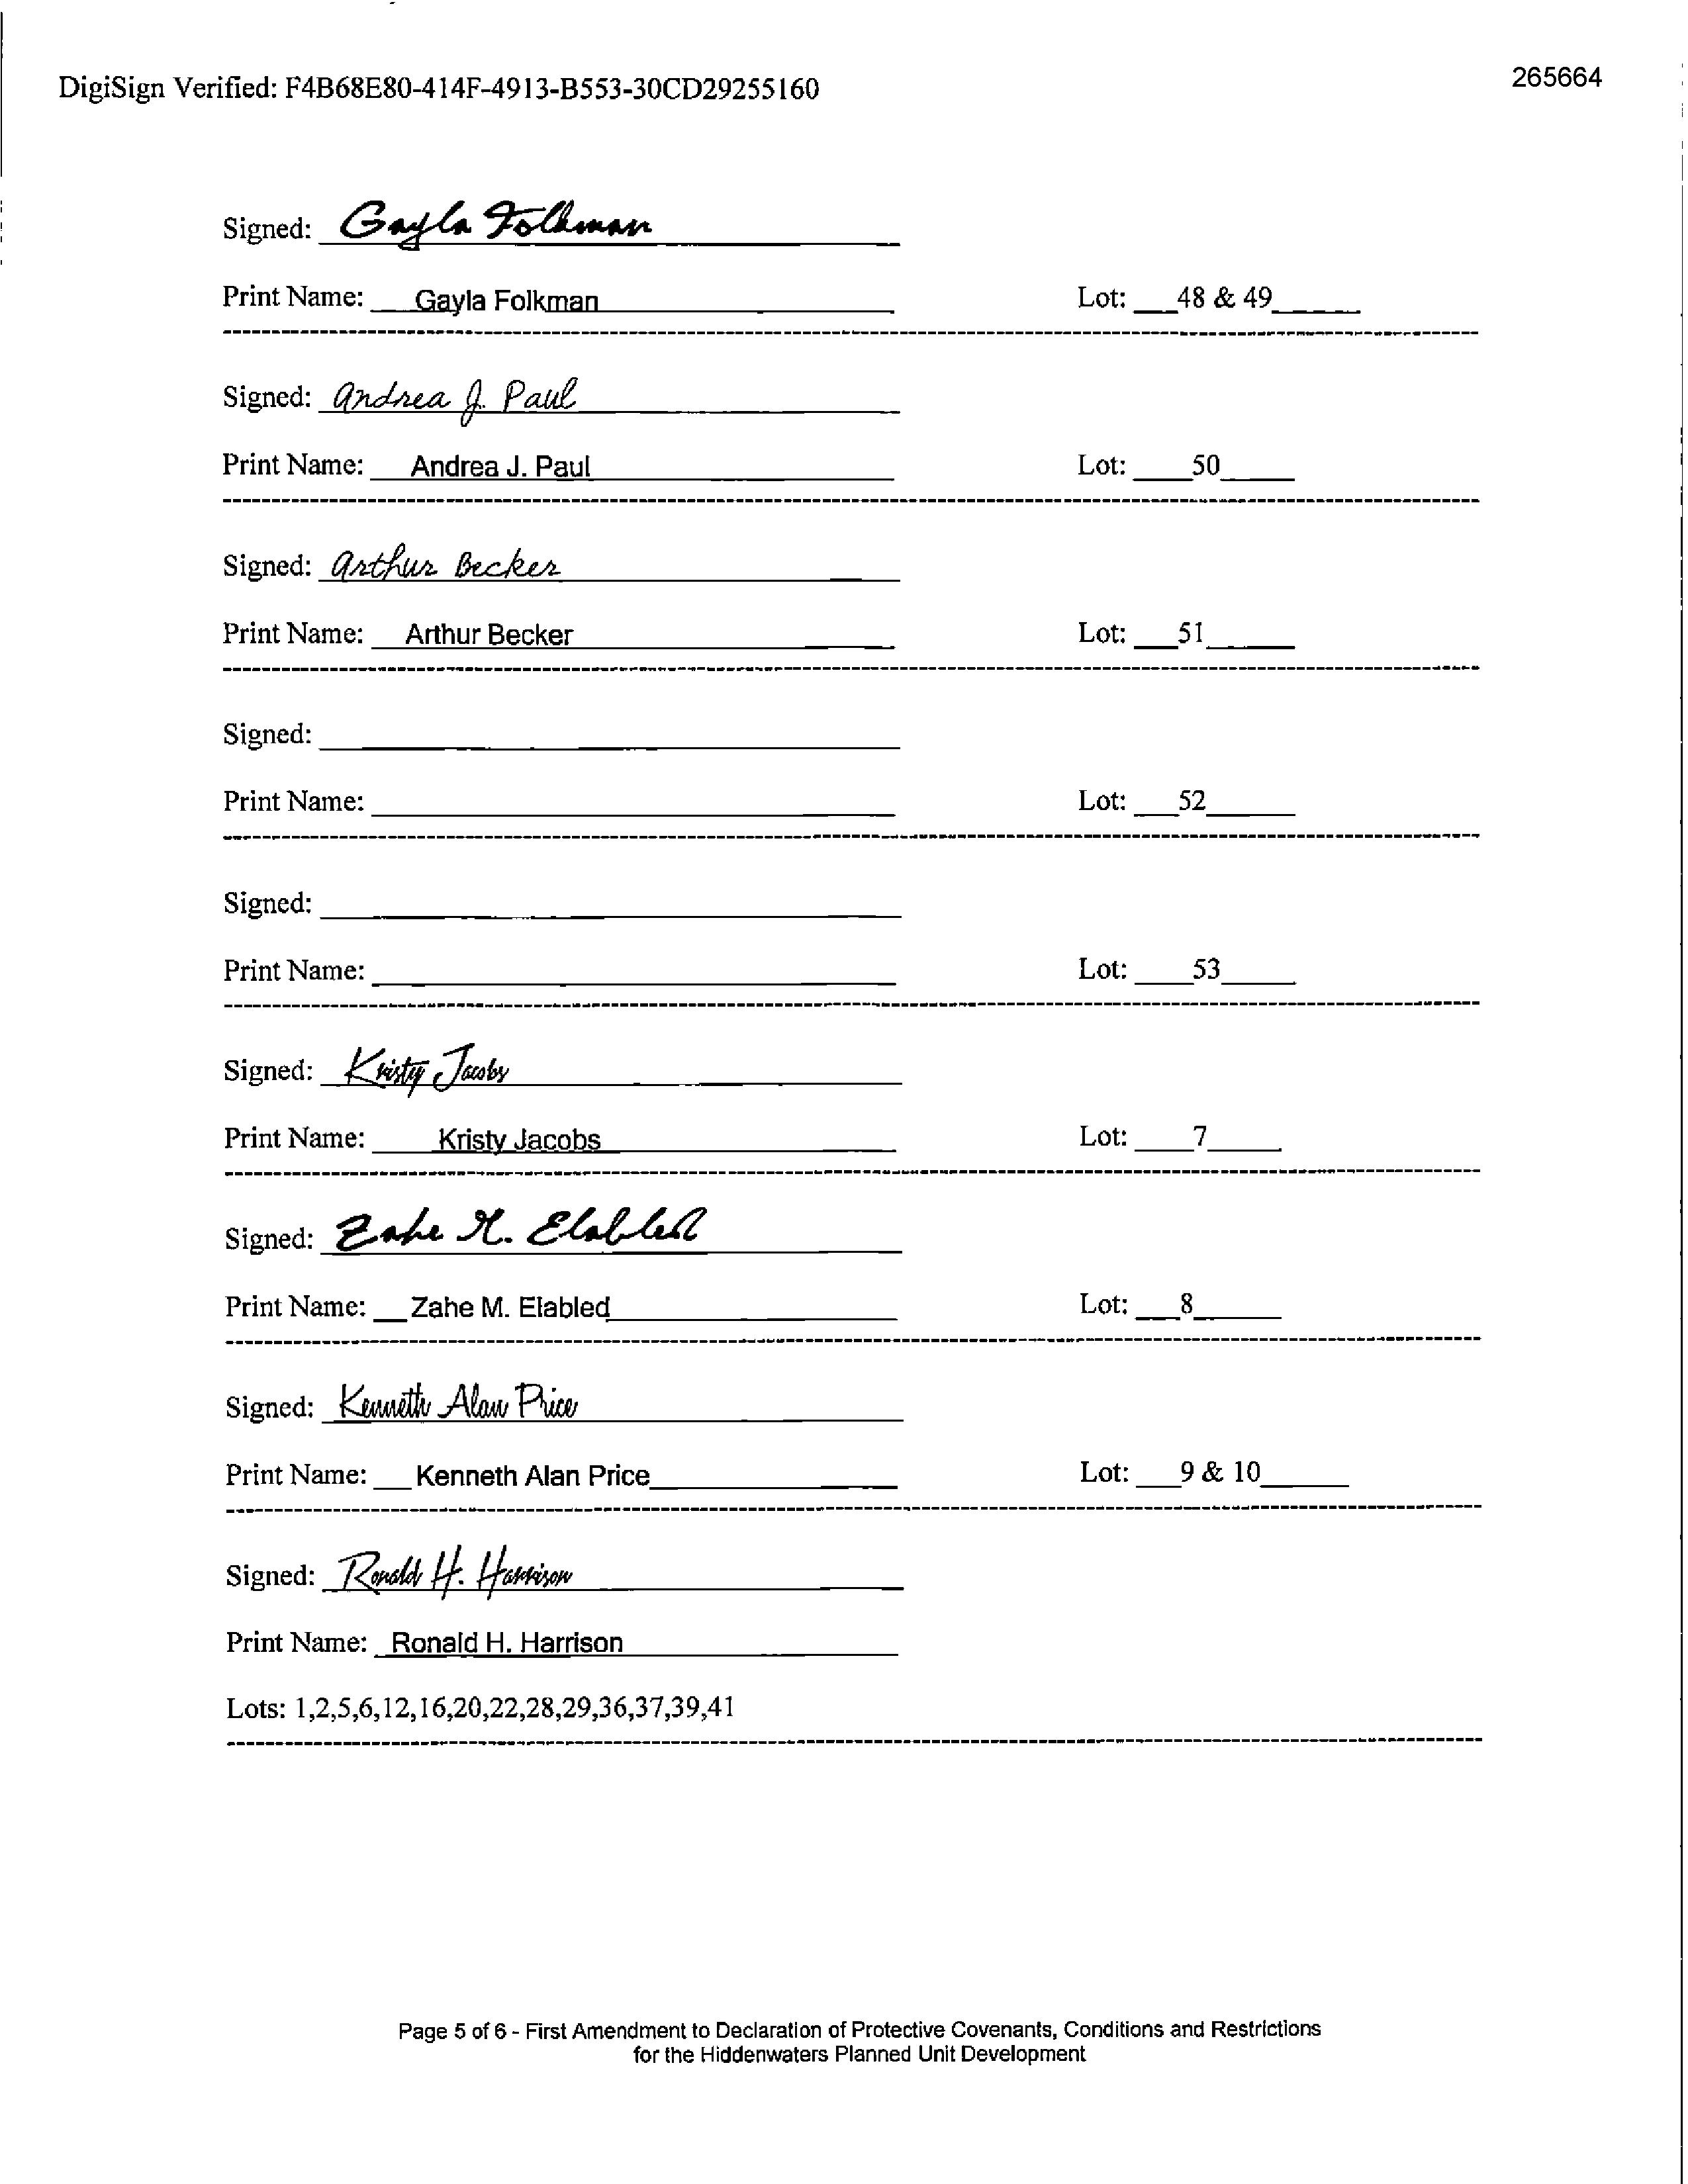 DigiSign Verified: F4B68E80-414F-4913-B553-30CD29255160
265664
Signed: Gayla Folkman
Print Name: Gayla Folkman Lot: 48 & 49
Signed: Andrea J. Paul
Print Name: Andrea J. Paul Lot: 50
Signed: Arthur Becker
Print Name: Arthur Becker Lot: 51
Signed:
Print Name: Lot: 52
Signed:
Print Name: Lot: 53
Signed: Kristy Jacobs
Print Name: Kristy Jacobs Lot: 7
Signed: Zahe M. Elabled
Print Name: Zahe M. Elabled Lot: 8
Signed: Kenneth Alan Price
Print Name: Kenneth Alan Price Lot: 9 & 10
Signed: Ronald H. Harrison
Print Name: Ronald H. Harrison
Lots: 1,2,5,6,12,16,20,22,28,29,36,37,39,41
Page 5 of 6 - First Amendment to Declaration of Protective Covenants, Conditions and Restrictions
for the Hiddenwaters Planned Unit Development